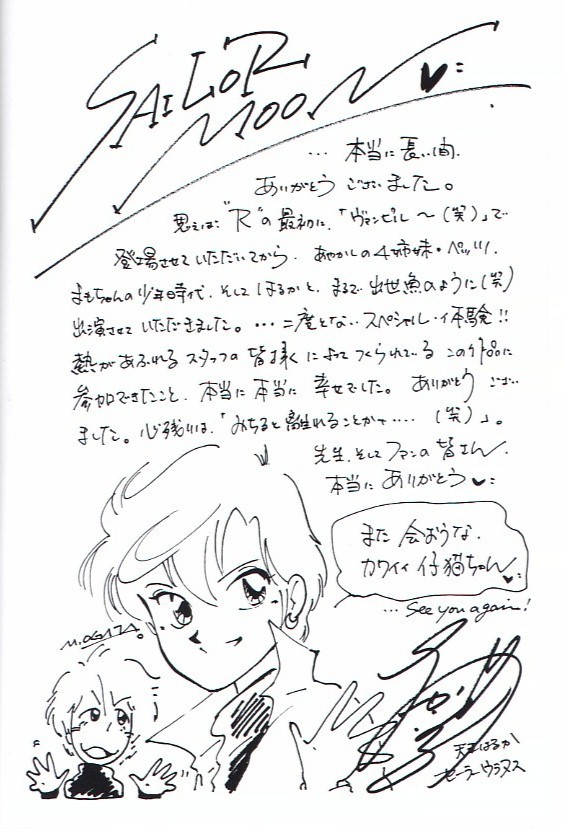 SAILOR
MOON
… 本当に長い間、
ありがとうございました。
思えば"R"の最初に、「ヴァンピル～(笑)」で
登場させていただいてから、あやかしの4姉妹・ペッツ、
まもちゃんの少年時代、そしてはるかと、まるで出世魚のように(笑)
出演させていただきました。…二度とないスペシャルな体験!!
熱があふれるスタッフの皆様によってつくられているこの作品に
参加できたこと、本当に本当に幸せでした。ありがとうござい
ました。心残りは、「みちると離れることかナ……(笑)」。
先生、そしてファンの皆さん、
本当にありがとう
また会おうな、
カワイイ仔猫ちゃん
…See you again!
M.OGATA。
天王はるか
セーラーウラヌス